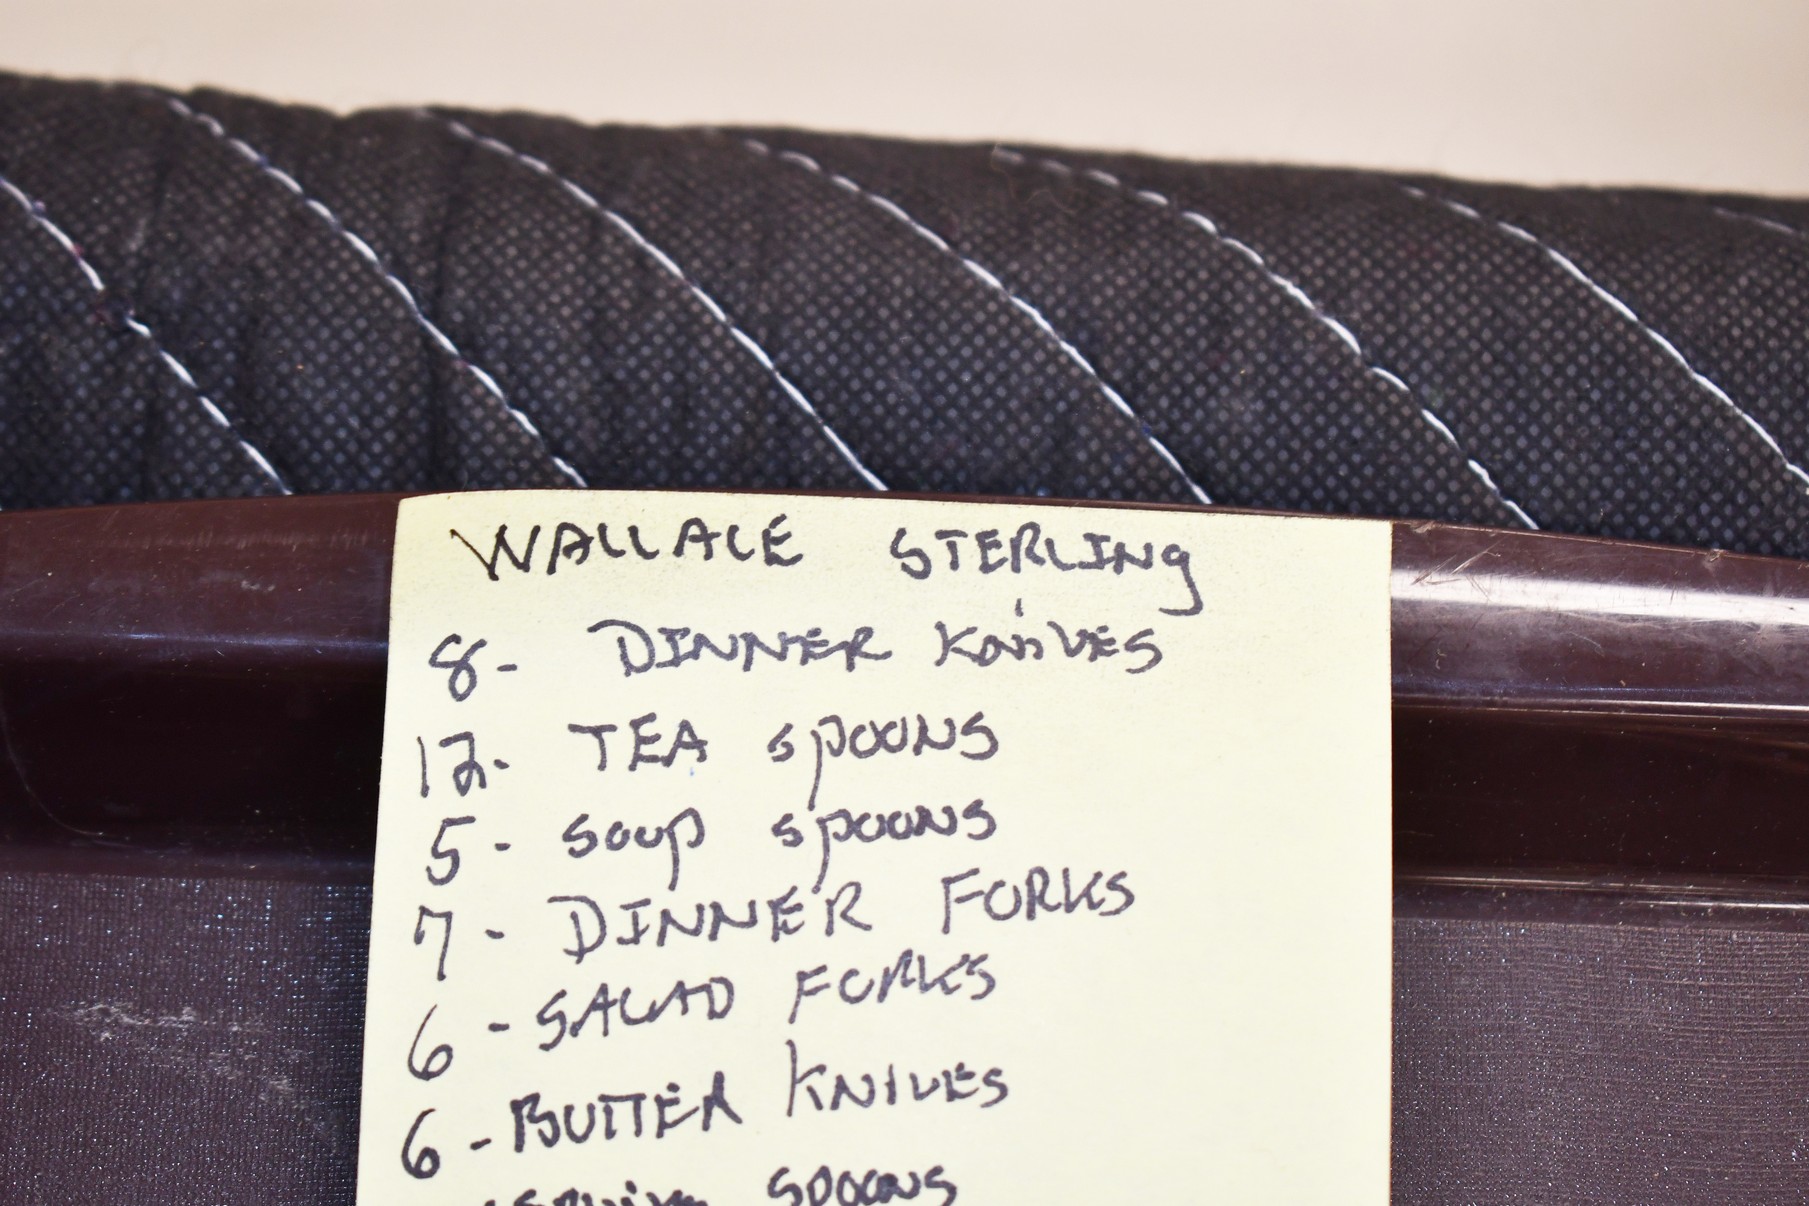 WALLACE STERLING
8- DINNER KNIVES
12- TEA SPOONS
5- SOUP SPOONS
7- DINNER FORKS
6-SALAD FORKS
6-BUTTER KNIVES
SPOONS